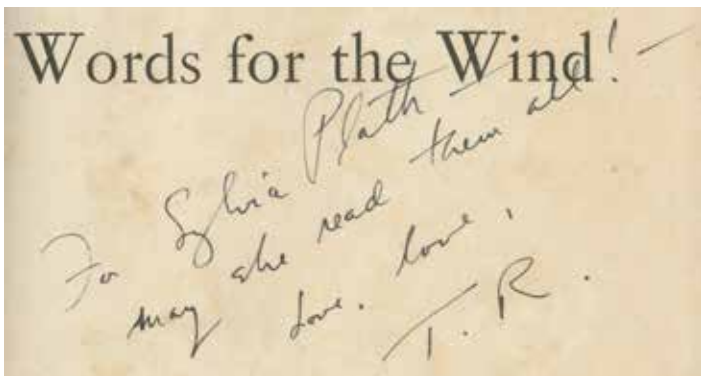 Words for the Wind!—
For Sylvia Plath —
may she read them all
Love, love,
T. R.